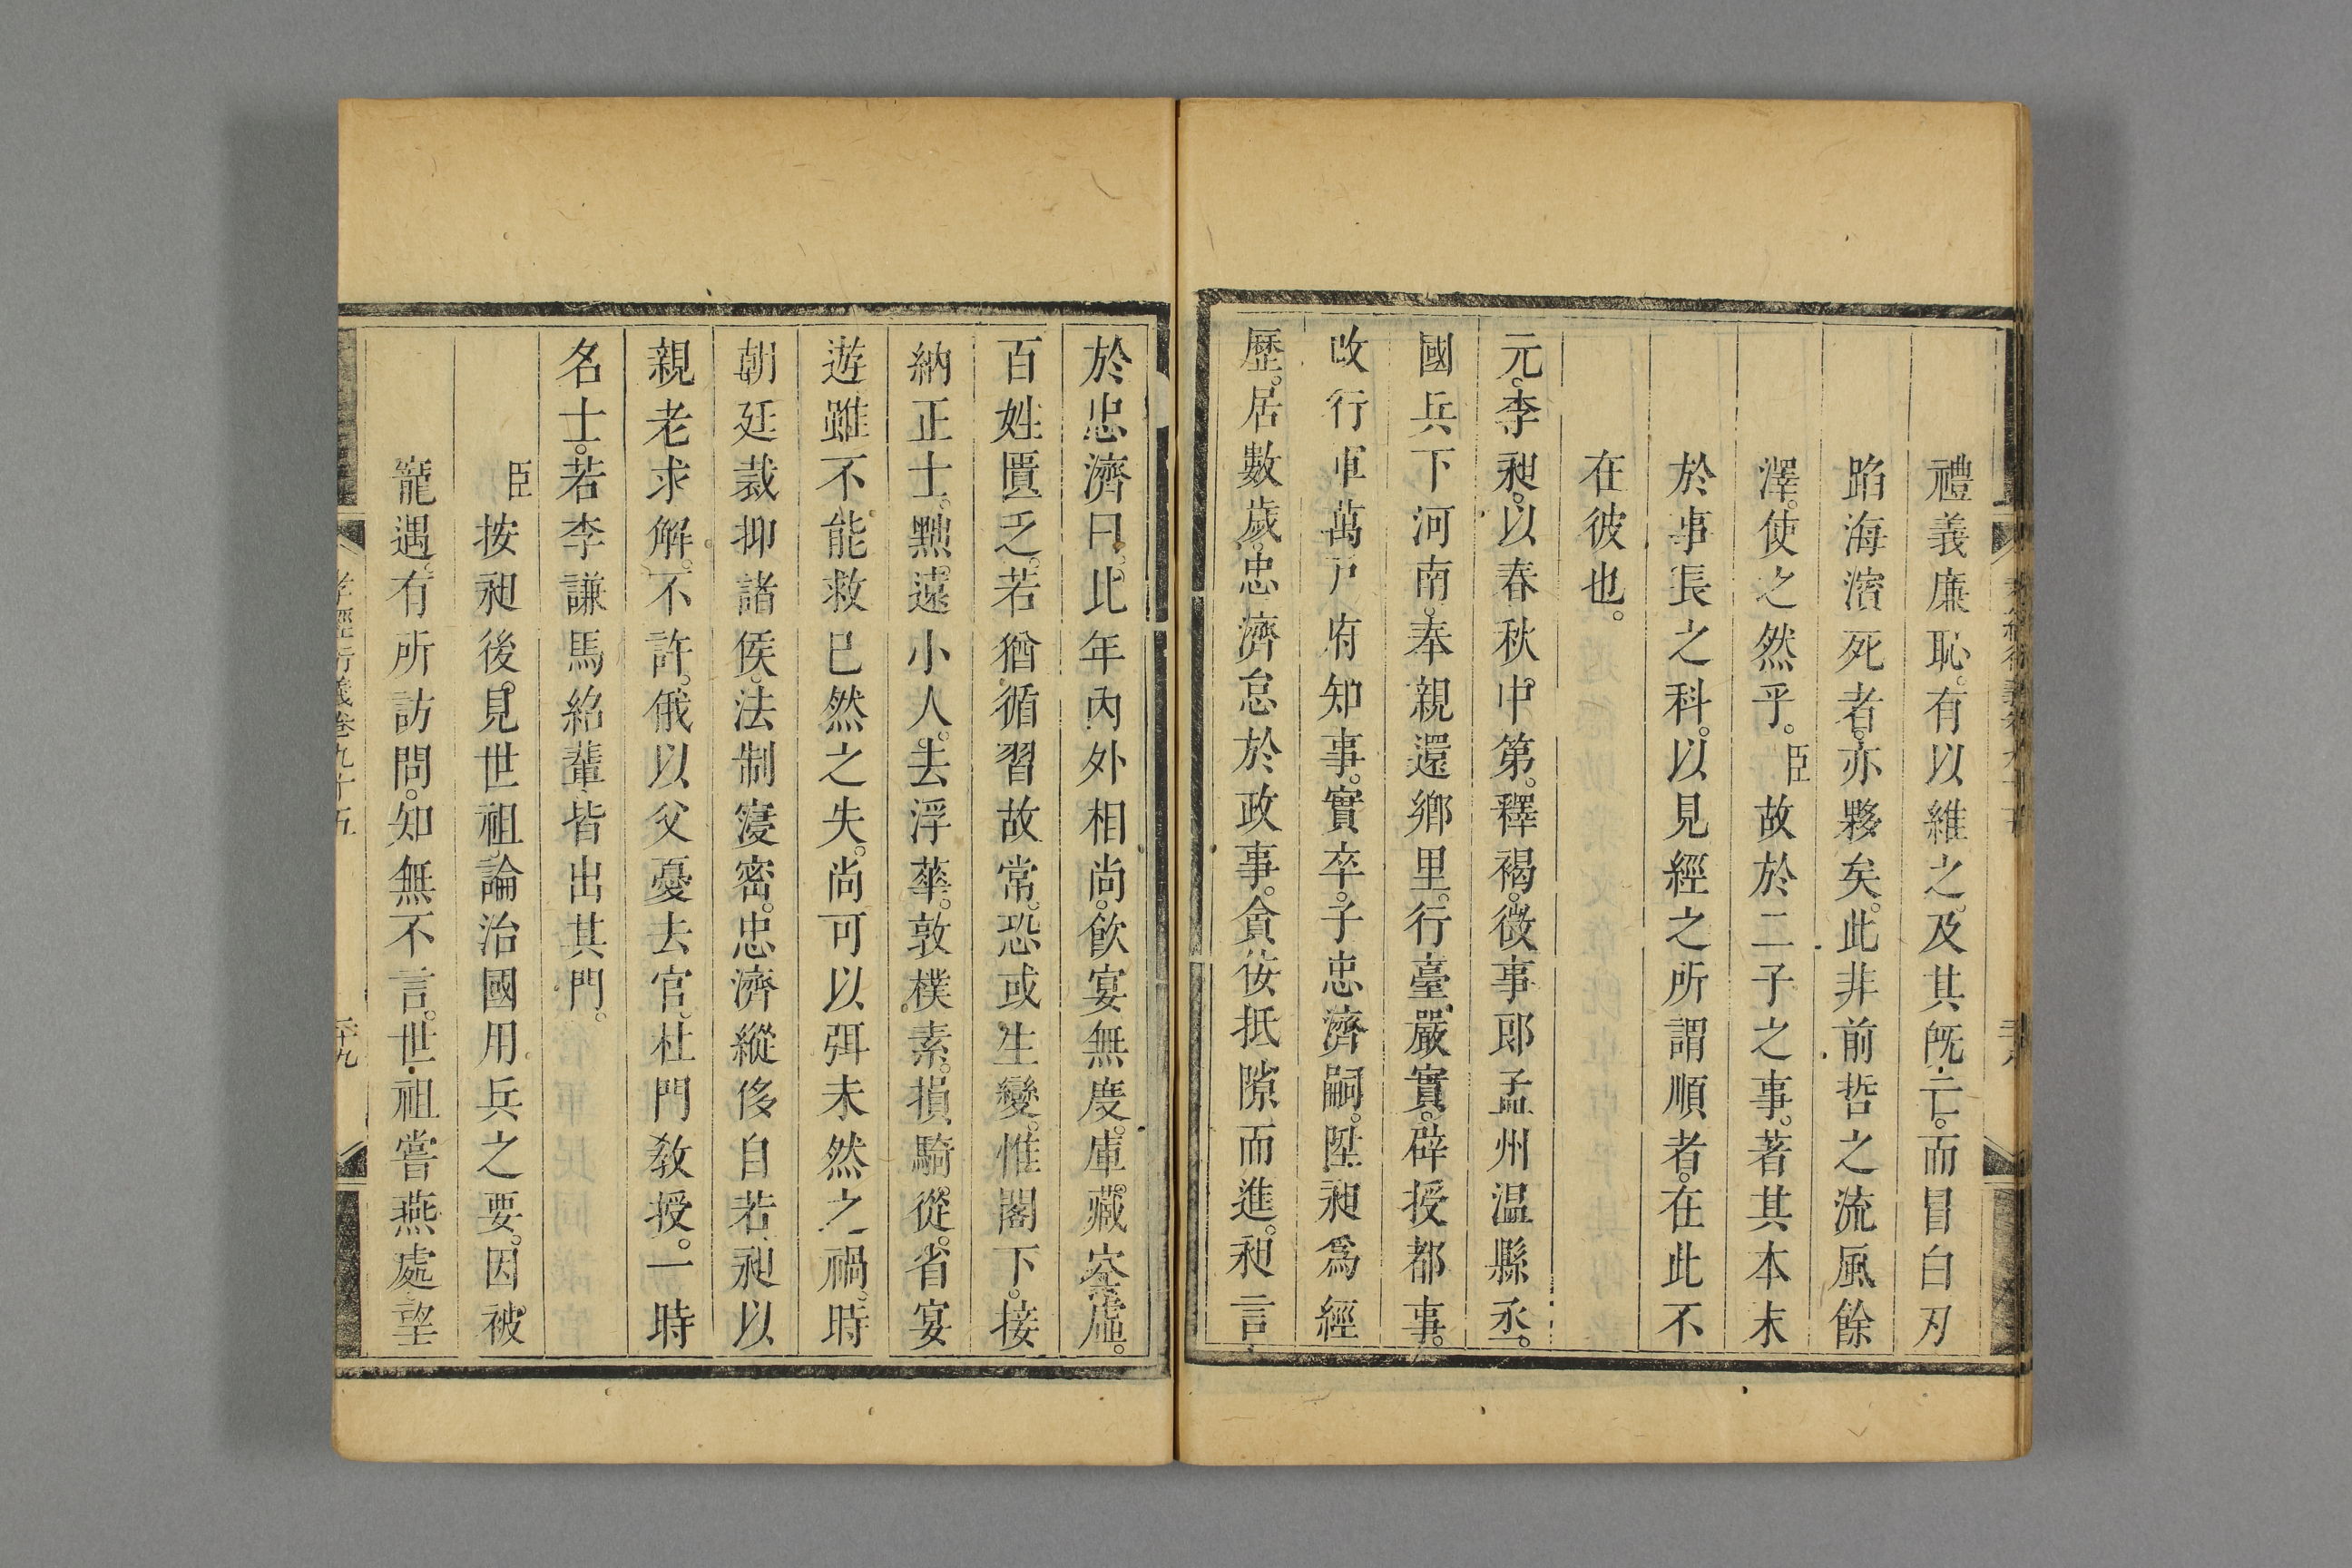 禮義廉恥。有以維之。及其旣亡。而冒白刃
蹈海濱死者。亦夥矣。此非前哲之流風餘
澤。使之然乎。臣故於二子之事。著其本末
於事長之科。以見經之所謂順者。在此不
在彼也。
元。李昶。以春秋。中第。釋褐。徵事郎孟州温縣丞。
國兵下河南。奉親還鄉里。行臺嚴實。辟授都事。
改行軍萬戸府知事。實卒。子忠濟嗣。陞昶爲經
歷。居數歲。忠濟怠於政事。貪佞抵隙而進。昶言
於忠濟曰。比年內外相尚。飲宴無度。庫藏空虛。
百姓匱乏。若猶循習故常。恐或生變。惟閣下。接
納正士。黜遠小人。去浮華。敦樸素。損騎從。省宴
遊雖不能救已然之失。尚可以弭未然之禍。時
朝廷裁抑諸侯。法制寖密。忠濟縱侈自若。昶以
親老求解。不許。俄以父憂去官。杜門教授。一時
名士。若李謙馬紹輩皆出其門。
臣按昶後見世祖。論治國用兵之要。因被
寵遇。有所訪問。知無不言。世祖嘗燕處。望
孝經衍義卷九十五